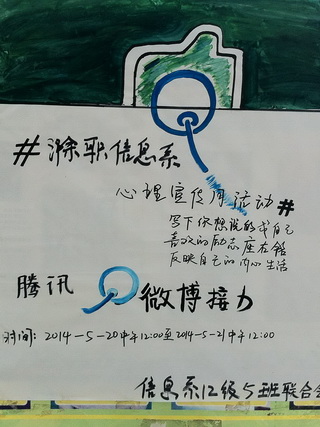 #涂职信息系
心理宣传周活动#
写下你想说的或自己
喜欢的励志座右铭
反映自己的内心生活
腾讯 微博接力
时间: 2014-5-20中午12:00至2014-5-21中午12:00
信息系12级5班联合会